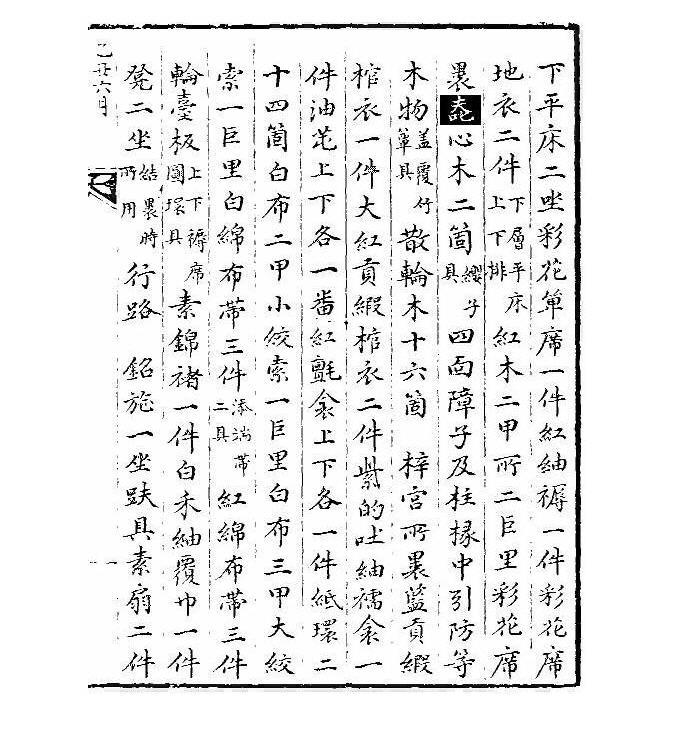 下平床二坐彩花單席一件紅紬褥一件彩花席
地衣二件下層平床上下排紅木二甲所二巨里彩花席
裹心木二箇纓子具四面障子及柱椽中引防等
木物蓋覆竹簟具散輪木十六箇 梓宮所裹藍貢緞
棺衣一件大紅貢緞棺衣二件紫的吐紬襦衾一
件油芚上下各一番紅氈衾上下各一件紙環二
十四箇白布二甲小絞索一巨里白布三甲大絞
索一巨里白綿布帶三件添端帶二具紅綿布帶三件
輪臺板上下褥席圓環具素錦褚一件白禾紬覆巾一件
凳二坐結裹時所用行路 銘旌一坐趺具素扇二件
乙丑六月
一